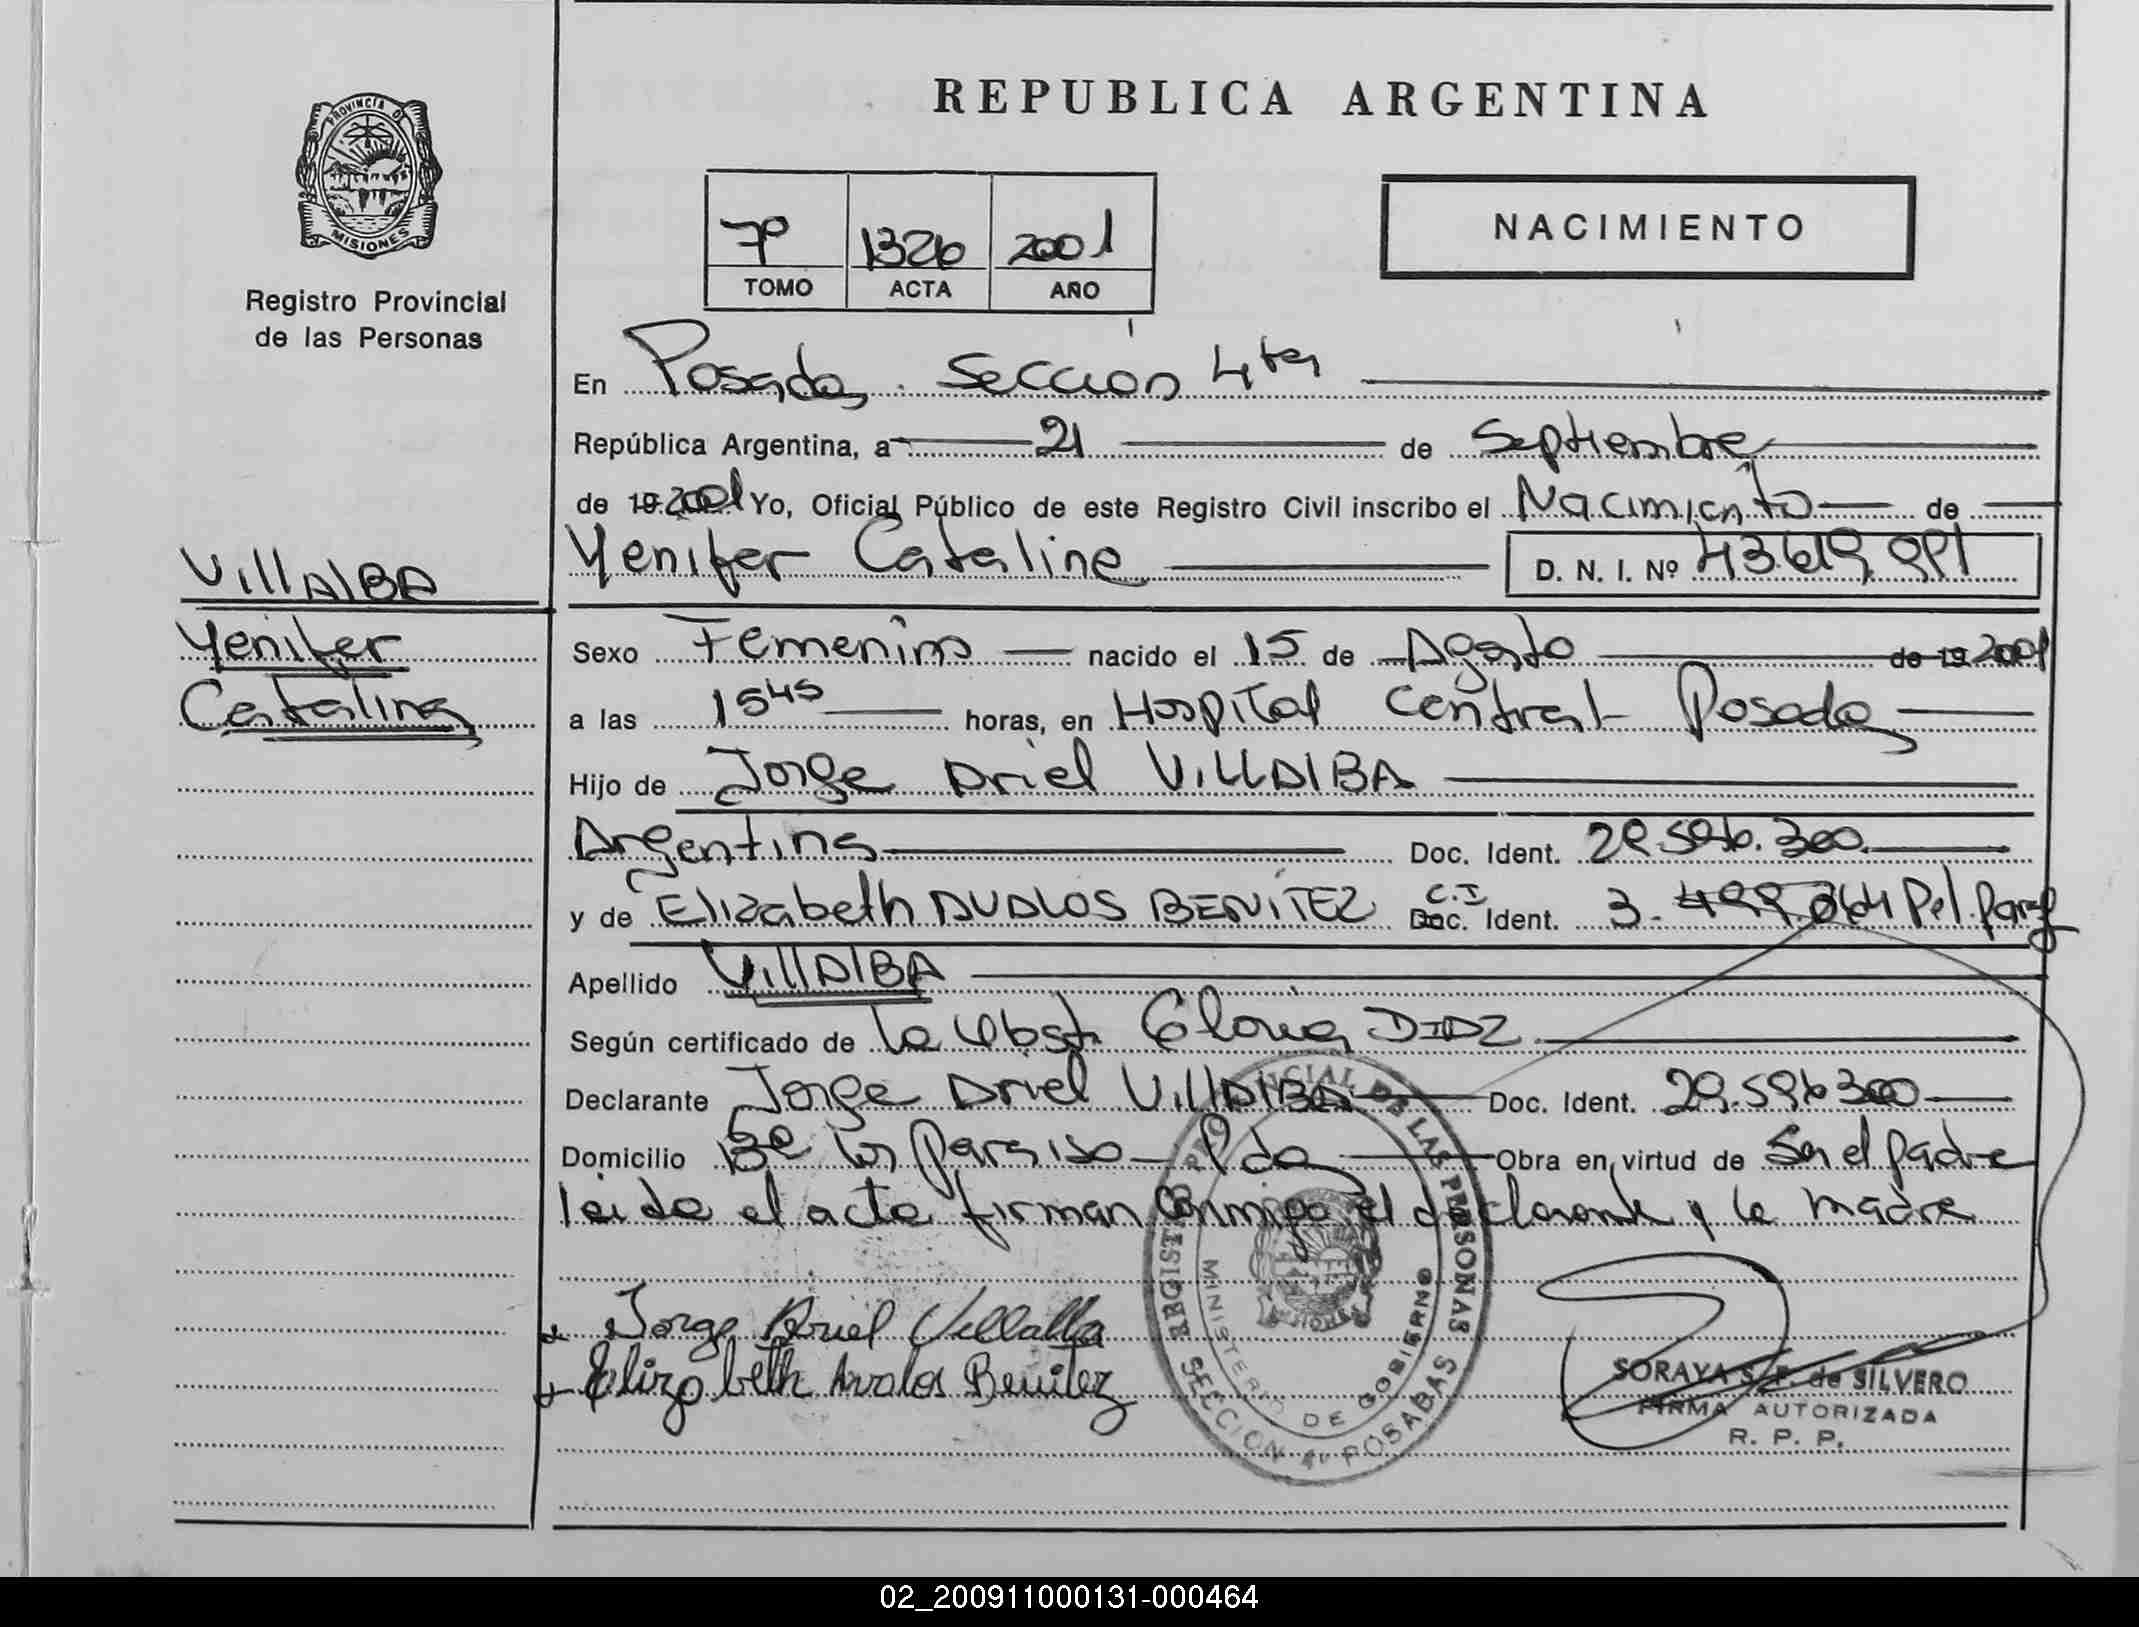 REPUBLICA ARGENTINA
PROVINCIA DE
MISIONES
Registro Provincial
de las Personas
7º 1326 2001
TOMO ACTA AÑO
NACIMIENTO
En Posadas. Sección 4ta
República Argentina, a 21 de Septiembre
de 19 2001 Yo, Oficial Público de este Registro Civil inscribo el Nacimiento de
Yenifer Catalina D. N. I. Nº
VIllAlBA
Yenifer
Catalina
Sexo Femenino nacido el 15 de Agosto de 19 2001
a las 15 45 horas, en Hospital Central Posadas
Hijo de Jorge Ariel VILLAlBA
Argentina Doc. Ident.
y de Elizabeth AVALOS BENITEZ C.I Doc. Ident. 3. 499.064 Pol. Parg
Apellido VillAlBA
Según certificado de la Obst. Gloria DIAZ
Declarante Jorge Ariel VillAlBA Doc. Ident.
Domicilio Bº los paraiso - Pdas Obra en virtud de Ser el padre
leida el acta firman conmigo el declarante y la madre
Jorge Ariel Villalba
Elizabeth Avalos Benitez
REGISTRO PROVINCIAL DE LAS PERSONAS
MINISTERIO DE GOBIERNO
SECCION 4ª POSADAS
SORAYA S. F. de SILVERO
FIRMA AUTORIZADA
R. P. P.
02_200911000131-000464